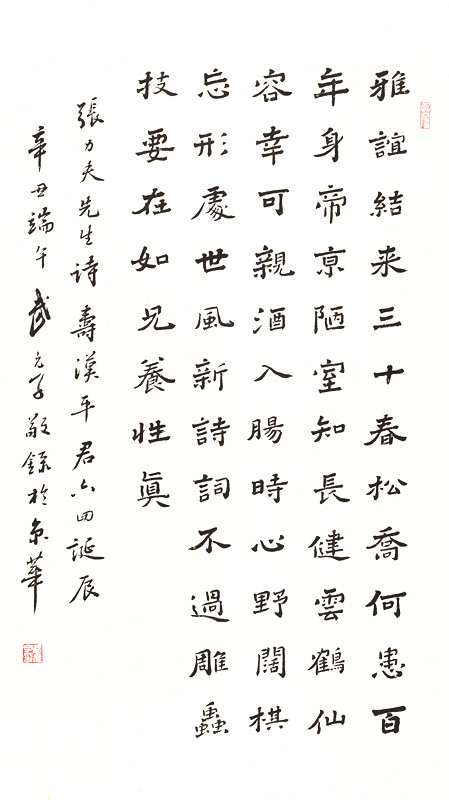 雅誼結来三十春松喬何患百
年身帝京陋室知長健雲鶴仙
容幸可親酒入腸時心野闊棋
忘形處世風新詩詞不過雕蟲
技要在如兄養性眞
張力夫先生詩壽漢平君六四誕辰
辛丑端午武元子敬録於京華